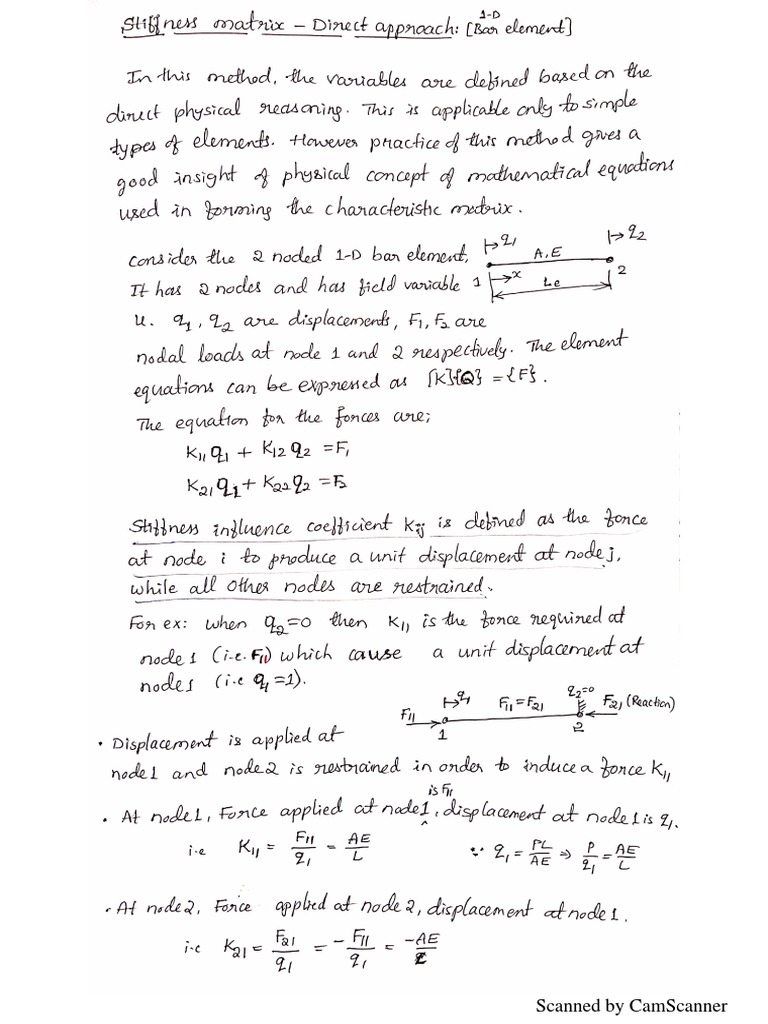 Stiffness matrix - Direct approach: [1-D Bar element]
In this method, the variables are defined based on the
direct physical reasoning. This is applicable only to simple
types of elements. However practice of this method gives a
good insight of physical concept of mathematical equations
used in forming the characteristic matrix.
Consider the 2 noded 1-D bar element,
q1 A,E q2
It has 2 nodes and has field variable
1 x Le 2
u. q1, q2 are displacements, F1, F2 are
nodal loads at node 1 and 2 respectively. The element
equations can be expressed as [K]{Q} = {F}.
The equation for the forces are;
K11 q1 + K12 q2 = F1
K21 q1 + K22 q2 = F2
Stiffness influence coefficient Kij is defined as the force
at node i to produce a unit displacement at node j,
while all other nodes are restrained.
For ex: when q2=0 then K11 is the force required at
node 1 (i.e. F11) which cause a unit displacement at
node 1 (i.e q1=1).
F11 q1 F11 = F21 q2=0 F21 (Reaction)
1 2
• Displacement is applied at
node 1 and node 2 is restrained in order to induce a force K11
• At node 1, Force applied at node 1 is F11, displacement at node 1 is q1.
i.e K11 = F11/q1 = AE/L ∵ q1 = PL/AE ⇒ P/q1 = AE/L
• At node 2, Force applied at node 2, displacement at node 1.
i.e K21 = F21/q1 = -F11/q1 = -AE/L
Scanned by CamScanner